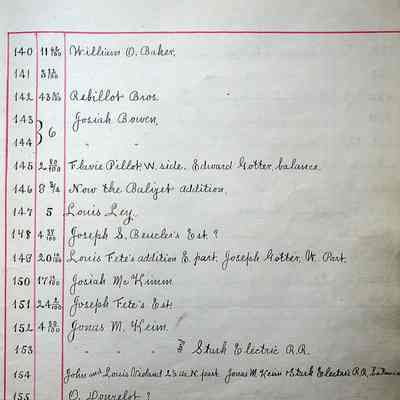 140 11 William O. Baker,
141 5
142 43 Rebillot Bros.
143 Josiah Bowen,
6
144 " "
145 2 Flavie Pillot, W. side. Edward Gotter, balance.
146 8 3/4 Now the Baliget addition,
147 5 Louis Ley.
148 4 Joseph S. Beucler's Est. ?
149 20 Louis Fete's addition E. part. Joseph Gotter, W. Part.
150 17 Josiah McKimm
151 24 Joseph Fete's Est.
152 4 Jonas M. Keim.
153 " " " " & Stark Electric R.R.
154 John and Louis N. part Jonas M Keim & Stark Electric R.R.
155 O. ?